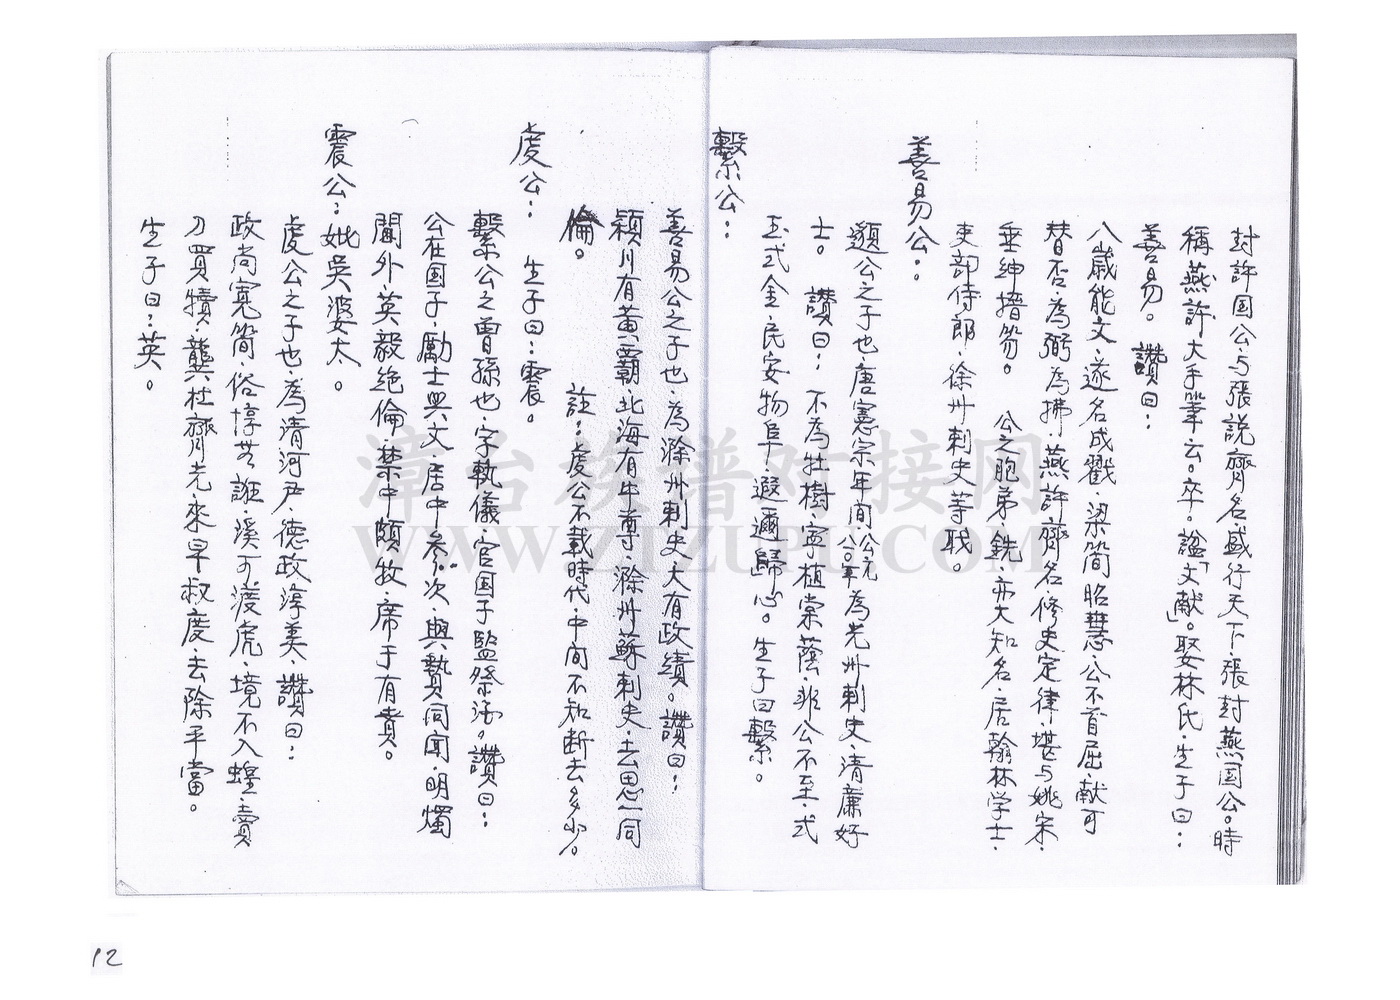 封許国公与張説齊名盛行天下張封燕国公。時
稱燕許大手筆云。卒。諡「文献」。娶林氏·生子曰：
善易。讚曰：
八歲能文·遂名成戳·梁簡昭慧·公不首屈·献可
替否·為弼為拂·燕許齊名·修史定律·堪与姚宋·
垂紳搢笏。 公之胞弟·銑·亦大知名·居翰林学士·
吏部侍郎·徐州刺史等职。
善易公：
頲公之子也·唐憲宗年间·公元八〇五年為光州刺史·清廉好
士。 讚曰：不為牡樹·寧植棠蔭·非公不至·式
玉式金·民安物阜·遐邇歸心。生子曰繫。
繫公：
善易公之子也·為滁州刺史·大有政績。讚曰：
穎川有黃霸·北海有牛尊·滁州蘇刺史·去思一同
倫。 註：虔公不載時代·中间不知断去多少。
虔公： 生子曰：震。
繫公之曾孫也·字執儀·官国子監祭酒。讚曰：
公在国子·勵士興文·居中參次·與贄同闻·明燭
閫外·英毅絶倫·禁中頗牧·席于有賁。
震公：妣吳婆太。
虔公之子也·為清河尹·德政淳美·讚曰：
政尚寬简·俗惇芒誑·溪可渡虎·境不入蝗·賣
刀買犢·龔杜齊光·來早叔度·去除平當。
生子曰：英。
漳台族谱对接网
WWW.ZTZUPU.COM
12